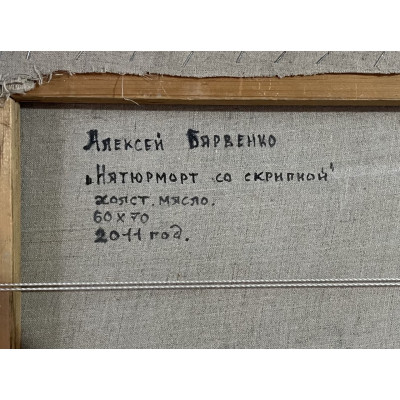 Алексей Барвенко
„Натюрморт со скрипкой"
холст, масло.
60 х 70
2011 год.